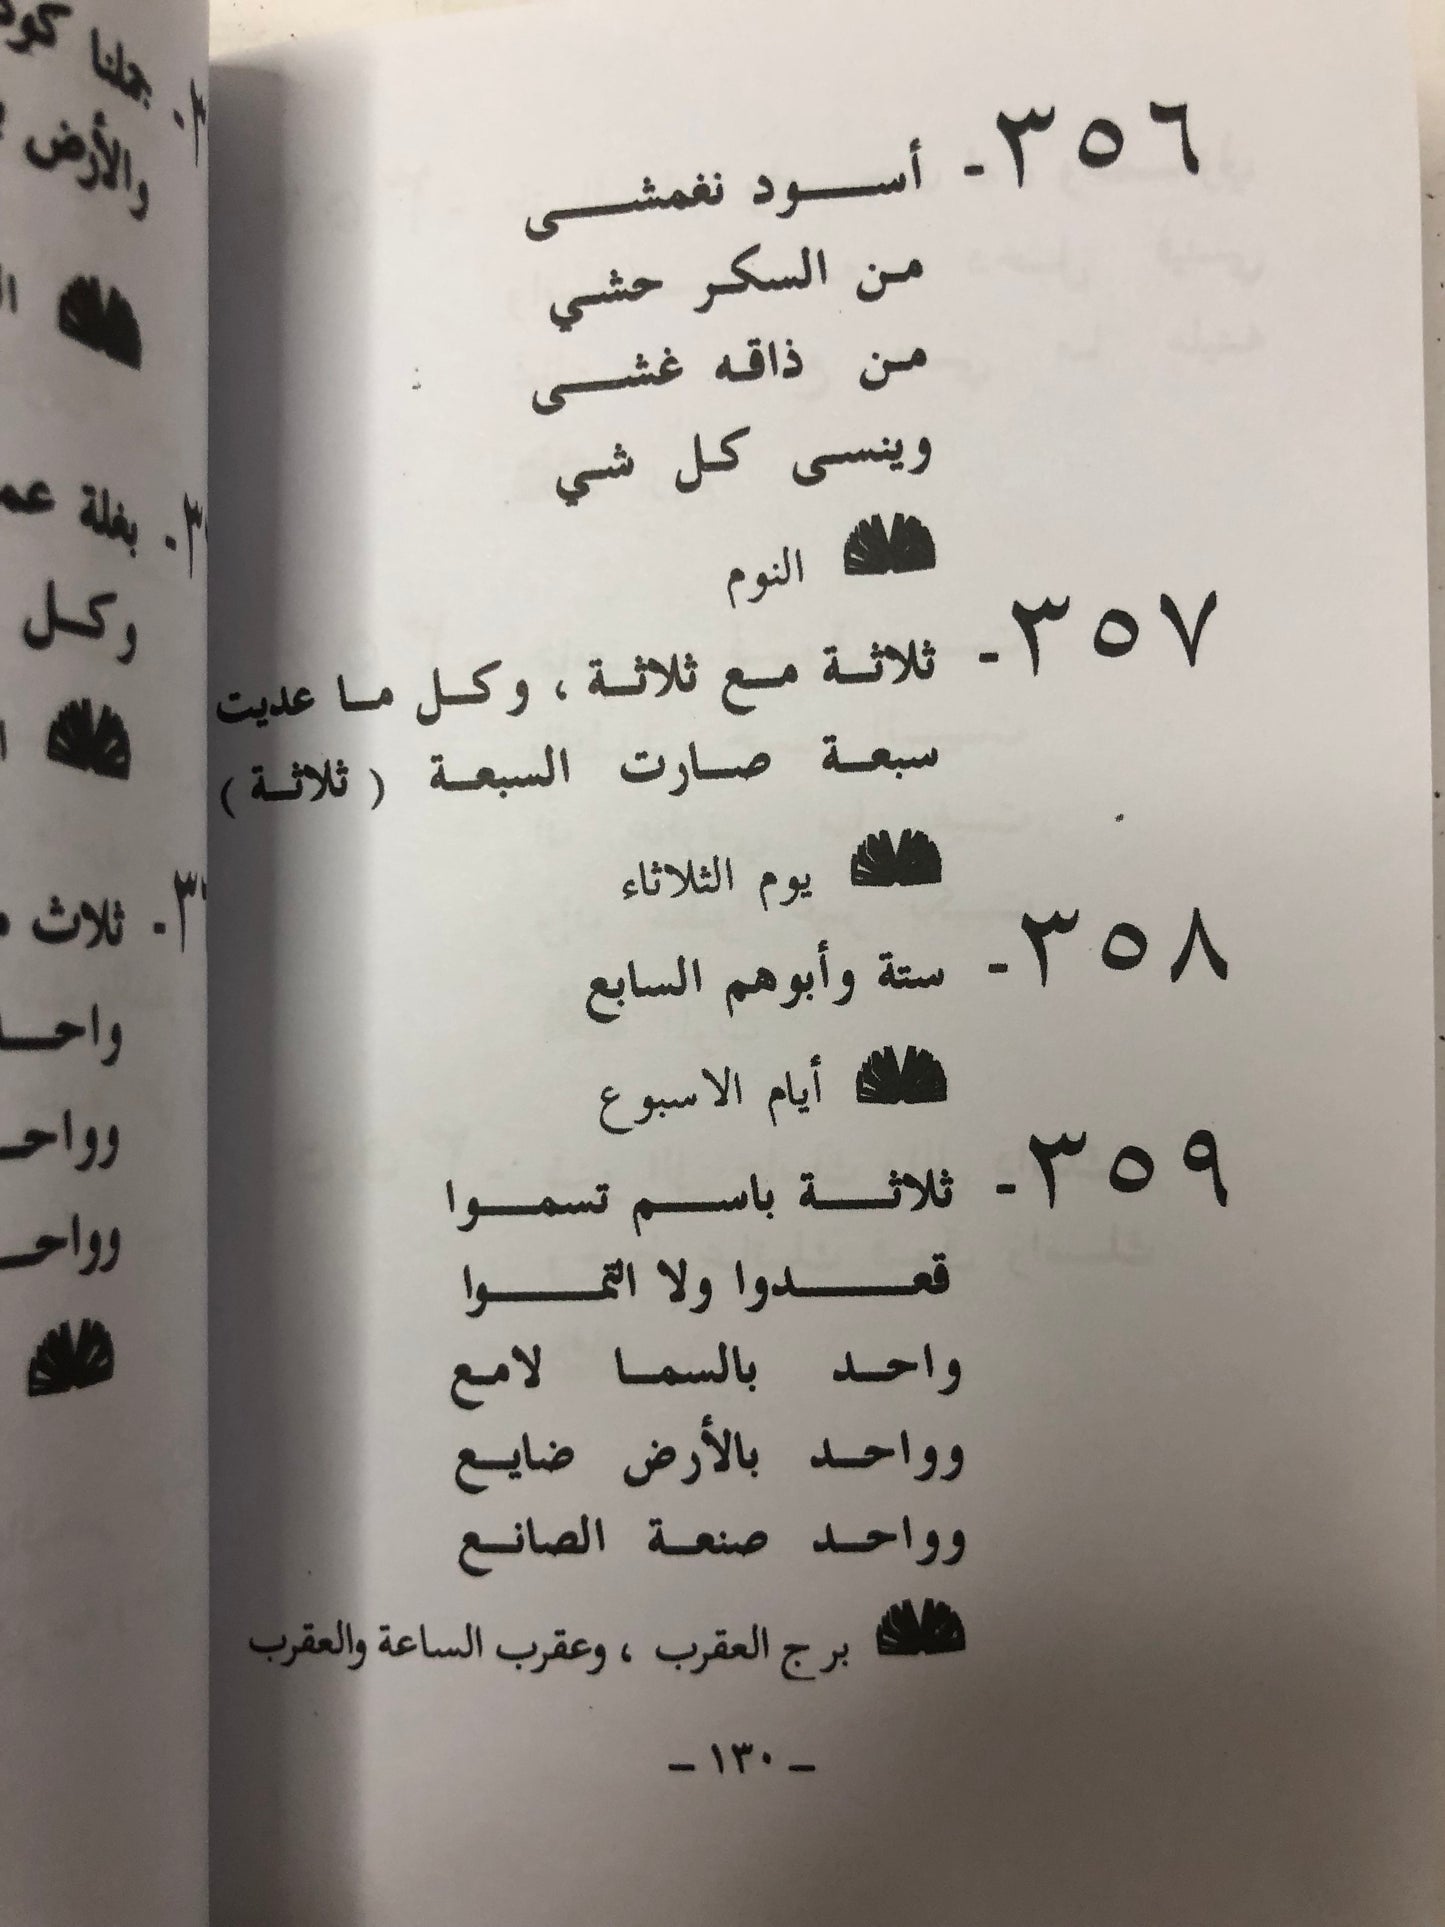 ٣٥٦ - أسود نغمشى
من السكر حشي
من ذاقه غشى
وينسى كل شي
النوم
٣٥٧ - ثلاثة مع ثلاثة ، وكل ما عديت
سبعة صارت السبعة ( ثلاثة )
يوم الثلاثاء
٣٥٨ - ستة وأبوهم السابع
أيام الاسبوع
٣٥٩ - ثلاثة باسم تسموا
قعدوا ولا التموا
واحد بالسما لامع
وواحد بالأرض ضايع
وواحد صنعة الصانع
برج العقرب ، وعقرب الساعة والعقرب
- ١٣٠ -
جلنا
والأرض
بغلة
وكل
ثلاث